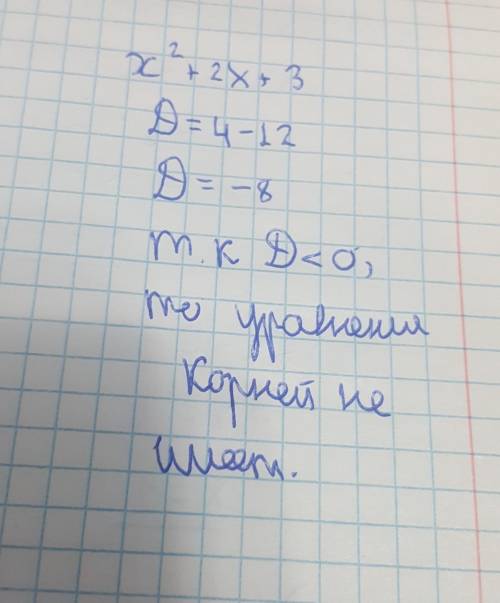 x² + 2x + 3
D = 4 - 12
D = -8
т.к D < 0,
то уравнения
корней не
имеет.